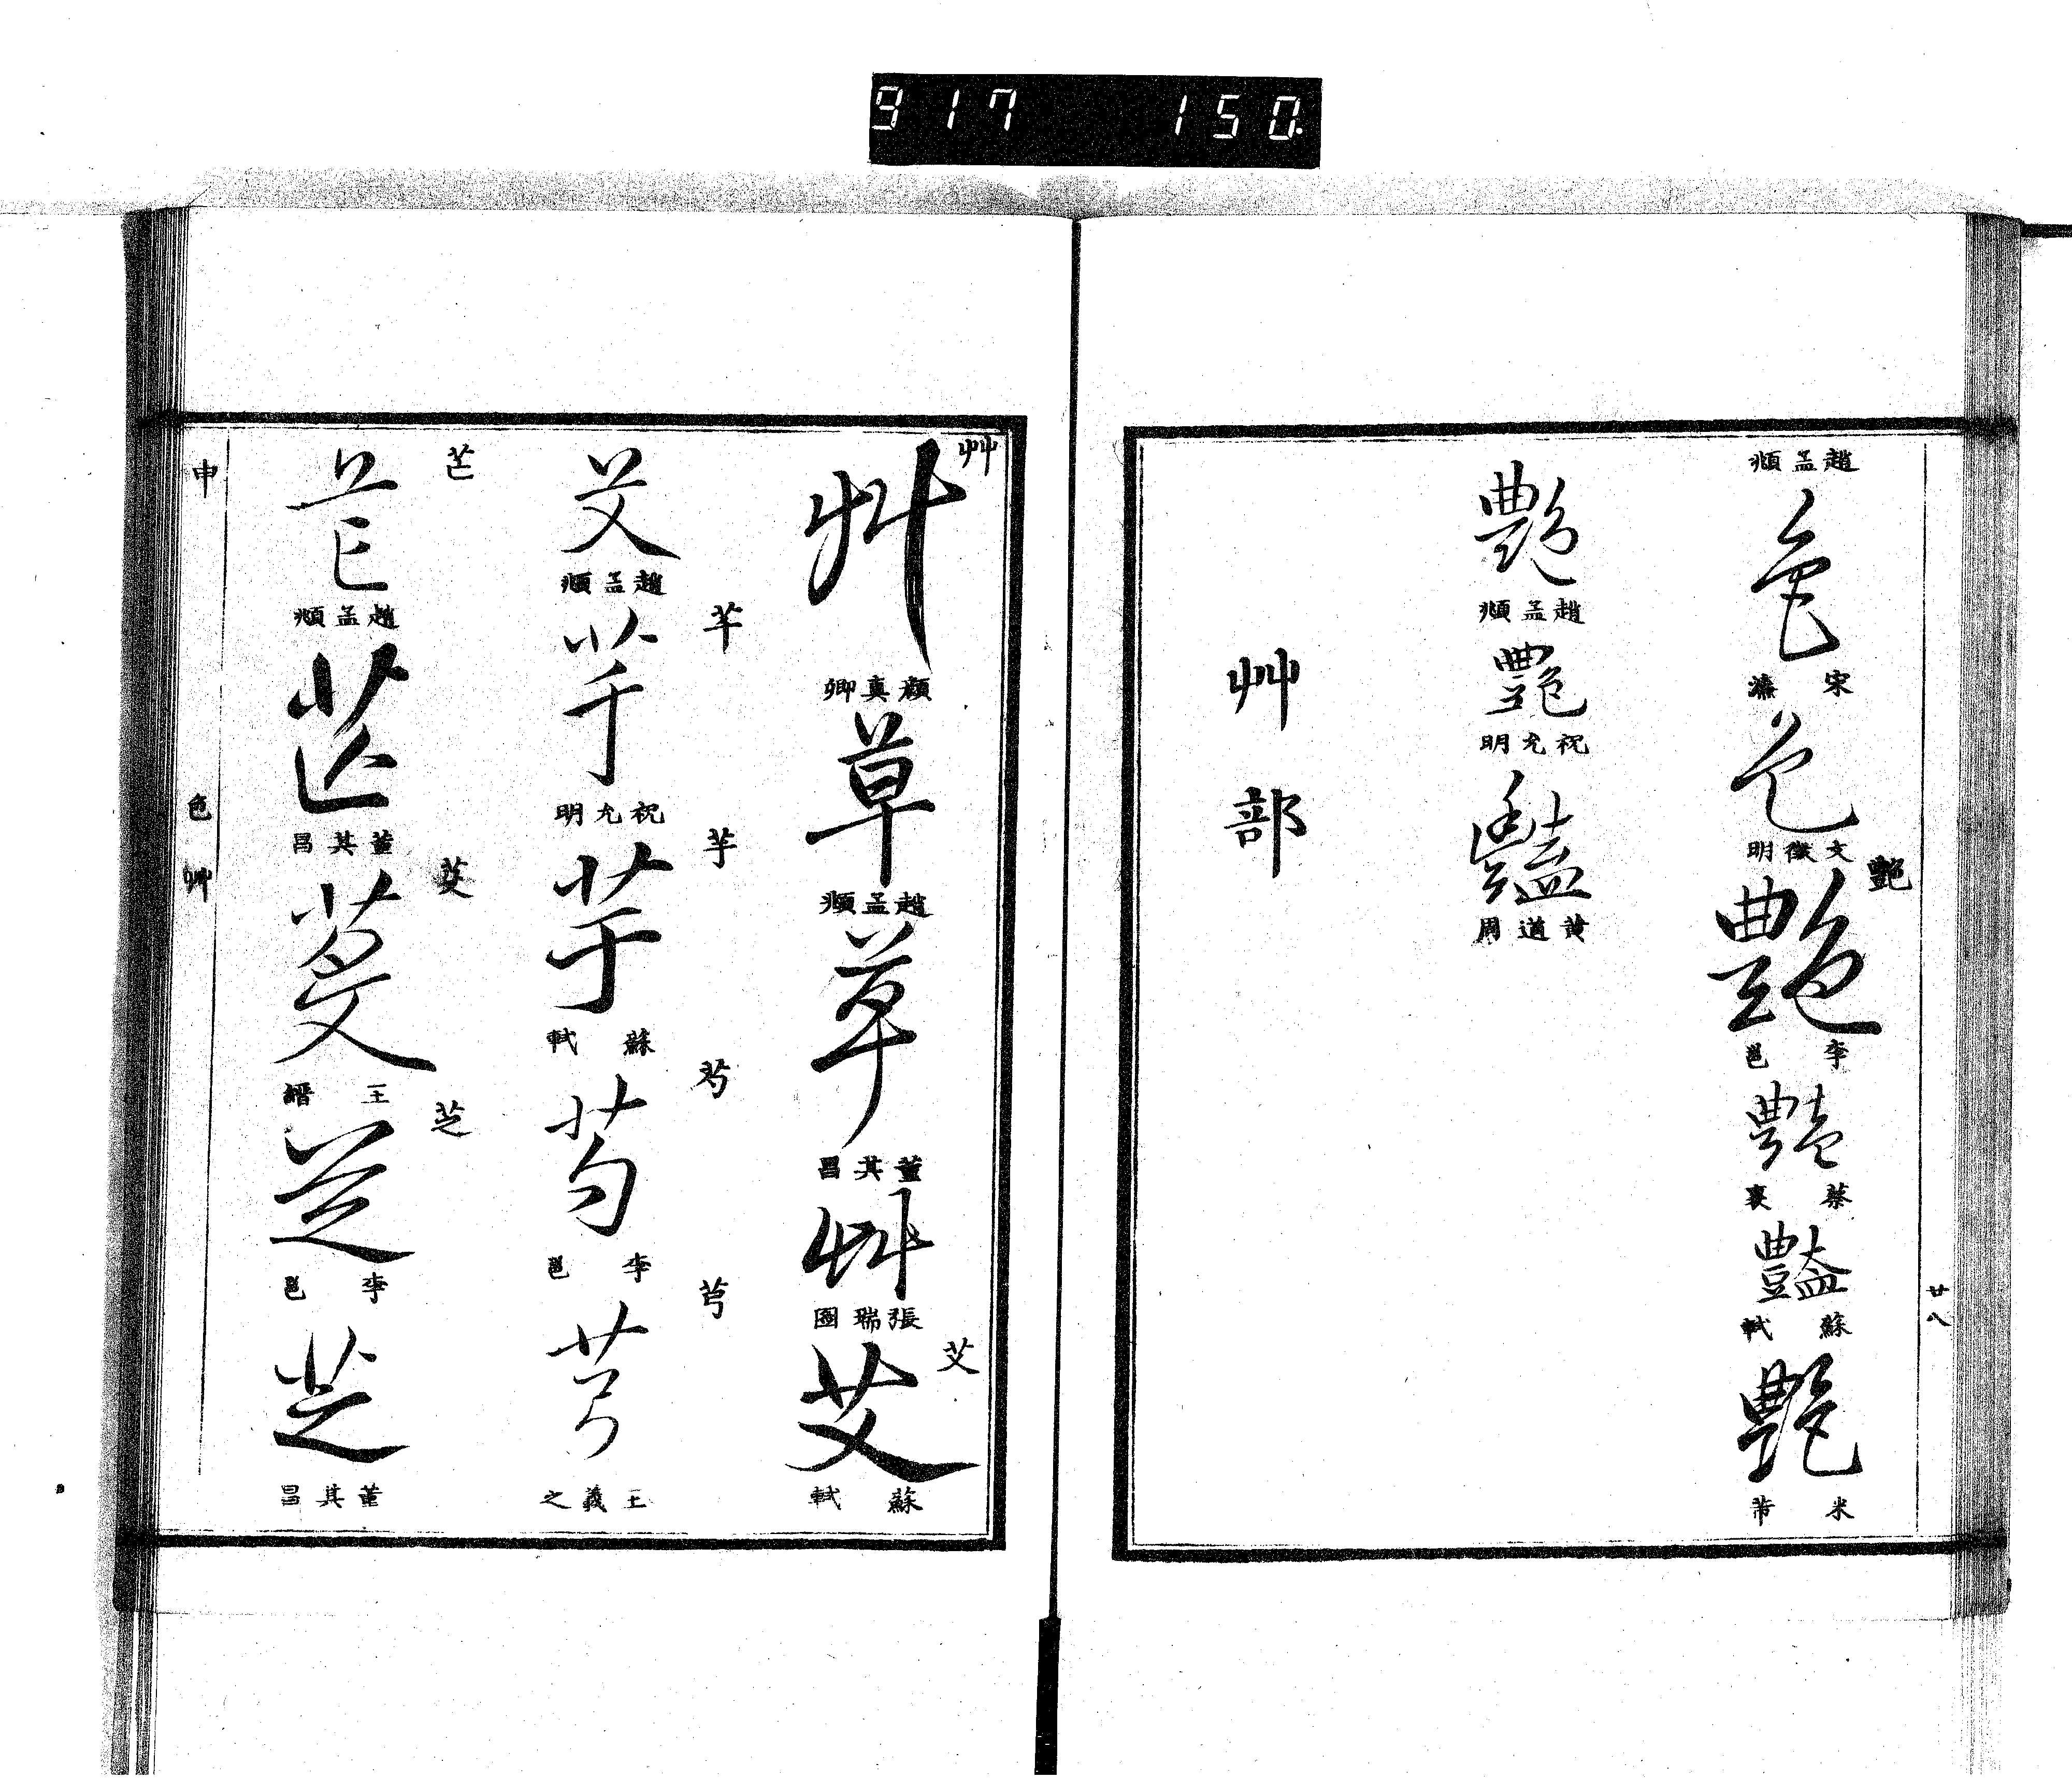 917 150
趙孟頫
色
宋濂
色
文徵明
艷
艷
李邕
豔
蔡襄
豔
蘇軾
艷
米芾
廿八
艷
趙孟頫
艷
祝允明
豔
黃道周
艸部
艸
艸
顏真卿
草
趙孟頫
草
董其昌
艸
張瑞圖
艾
艾
蘇軾
艾
趙孟頫
芊
芊
祝允明
芋
芋
蘇軾
芍
芍
李邕
芎
芎
王羲之
芒
芒
趙孟頫
芒
董其昌
芰
王縉
芝
芝
李邕
芝
董其昌
申
色
艸